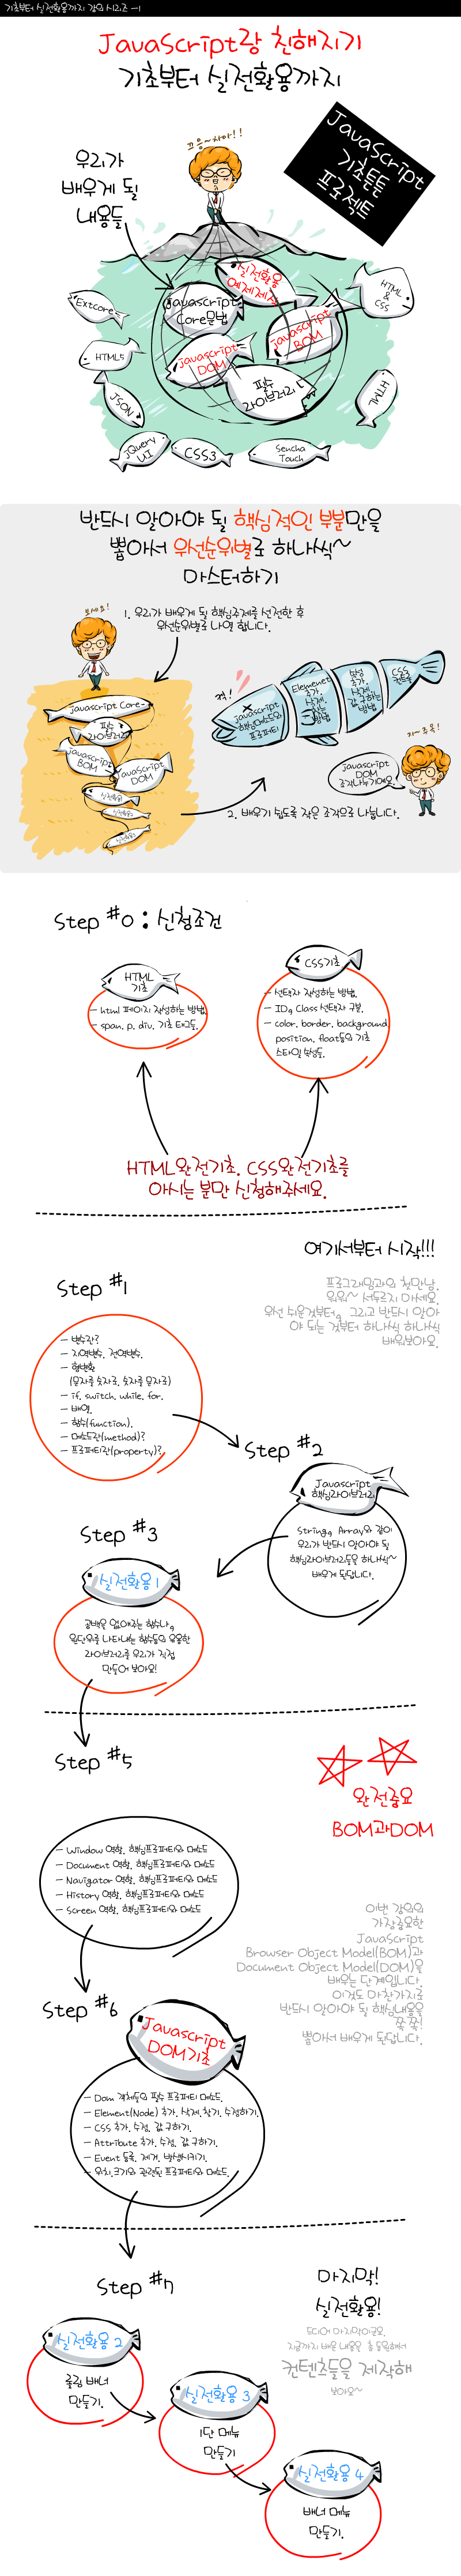 기초부터 실전활용까지 강의 시리즈 -1
JavaScript랑 친해지기
기초부터 실전활용까지
끄응~차아!!
JavaScript
기초튼튼
프로젝트
우리가
배우게 될
내용들
실전활용
예제제작
Javascript
Core문법
Javascript
BOM
Javascript
DOM
필수
라이브러리
HTML
&
CSS
Extcore
HTML5
JSON
HTML
JQuery
UI
CSS3
Sencha
Touch
반드시 알아야 될 핵심적인 부분만을
뽑아서 우선순위별로 하나씩~
마스터하기
보세요!
1. 우리가 배우게 될 핵심주제를 선정한 후
우선순위별로 나열 합니다.
Javascript Core
필수
라이브러리
Javascript
BOM
Javascript
DOM
척!
Javascript
핵심메소드와
프로퍼티
CSS
Javascript
DOM
조각나누기예요
2. 배우기 쉽도록 작은 조각으로 나눕니다.
Step #0 : 신청조건
HTML
기초
- html 페이지 작성하는 방법.
- span, p, div, 기초 태그들.
CSS기초
- 선택자 작성하는 방법.
- ID, Class 선택자 구분.
- color, border, background,
position, float등의 기초
스타일 속성들.
HTML완전기초, CSS완전기초를
아시는 분만 신청해주세요.
여기서부터 시작!!!
Step #1
프로그래밍과의 첫만남.
워워~ 서두르지 마세요.
우선 쉬운것부터, 그리고 반드시 알아
야 되는 것부터 하나씩 하나씩
배워보아요.
- 변수란?
- 지역변수, 전역변수.
- 형변환
(문자를 숫자로, 숫자를 문자로)
- if, switch, while, for.
- 배열.
- 함수(function).
- 메소드란(method)?
- 프로퍼티란(property)?
Step #2
Javascript
핵심라이브러리
String, Array와 같이
우리가 반드시 알아야 될
핵심라이브러리들을 하나씩~
배우게 된답니다.
Step #3
실전활용 1
공백을 없애주는 함수나,
원단위를 나타내는 함수등의 유용한
라이브러리를 우리가 직접
만들어 보아요!
Step #5
완전중요
BOM과DOM
- Window 역할, 핵심프로퍼티와 메소드
- Document 역할, 핵심프로퍼티와 메소드
- Navigator 역할, 핵심프로퍼티와 메소드
- History 역할, 핵심프로퍼티와 메소드
- Screen 역할, 핵심프로퍼티와 메소드
이번 강의의
가장중요한
JavaScript
Browser Object Model(BOM)과
Document Object Model(DOM)을
배우는 단계입니다.
이것도 마찬가지로
반드시 알아야 될 핵심내용을
쭉 쭉!
뽑아서 배우게 된답니다.
Step #6
Javascript
DOM기초
- Dom 객체들의 필수 프로퍼티 메소드.
- Element(Node) 추가, 삭제,찾기, 수정하기.
- CSS 추가, 수정, 값 구하기.
- Attribute 추가, 수정, 값 구하기.
- Event 등록, 제거, 발생시키기.
- 위치,크기와 관련된 프로퍼티와 메소드.
Step #7
마지막!
실전활용!
드디어 마지막이군요.
지금까지 배운 내용을 총 동원해서
컨텐츠들을 제작해
보아요~
실전활용 2
롤링 배너
만들기.
실전활용 3
1단 메뉴
만들기
실전활용 4
배너 메뉴
만들기.